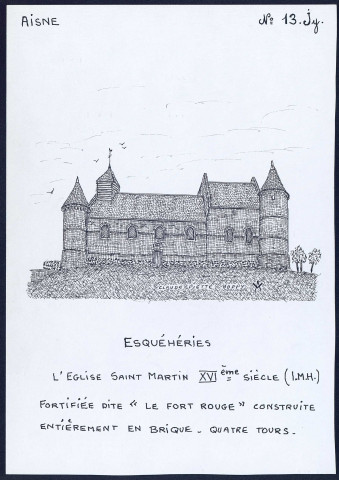 AISNE
No 13.Jy.
CLAUDE PIETTE
ESQUÉHÉRIES
L'EGLISE SAINT MARTIN XVI ème SIÈCLE (I.M.H.)
FORTIFIÉE DITE " LE FORT ROUGE " CONSTRUITE
ENTIÈREMENT EN BRIQUE _ QUATRE TOURS _